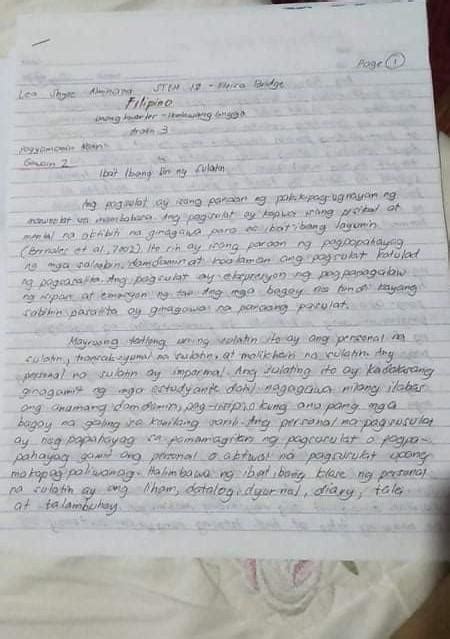 Page 1
STEM 12 - Bridge
Filipino
Unang kwarter - Ikalawang Linggo
Aralin 3
Pagyamanin Natin
Gawain 2
Ibat Ibang Uri ng Sulatin
Ang pagsulat ay isang paraan ng pakikipag-ugnayan ng
manunulat sa mambabasa. Ang pagsulat ay kapwa isang pisikal at
mental na aktibiti na ginagawa para sa ibat ibang layunin
(Bernales et al., 2002). Ito rin ay isang paraan ng pagpapahayag
ng mga saloobin, damdamin at kaalaman ang pagsulat katulad
ng pagsasalita. Ang pagsulat ay ekspresyon ng pagpapagalaw
ng isipan at emosyon ng tao. Ang mga bagay na hindi kayang
sabihin pasalita ay ginagawa na paraang pasulat.
Mayroong tatlong uri ng sulatin ito ay ang personal na
sulatin, transaksyunal na sulatin, at malikhain na sulatin. Ang
personal na sulatin ay impormal. Ang sulating ito ay kadalasang
ginagamit ng mga estudyante dahil nagagawa nilang ilabas
ang anumang damdamin, pag-iisip o kung ano pang mga
bagay na galing sa kanilang sarili. Ang personal na pagsusulat
ay nag papahayag sa pamamagitan ng pagsusulat o pagpa-
pahayag gamit ang personal o aktwal na pagsusulat upang
makapag paliwanag. Halimbawa ng ibat ibang klase ng personal
na sulatin ay ang liham, dyornal, diary,
at talambuhay.